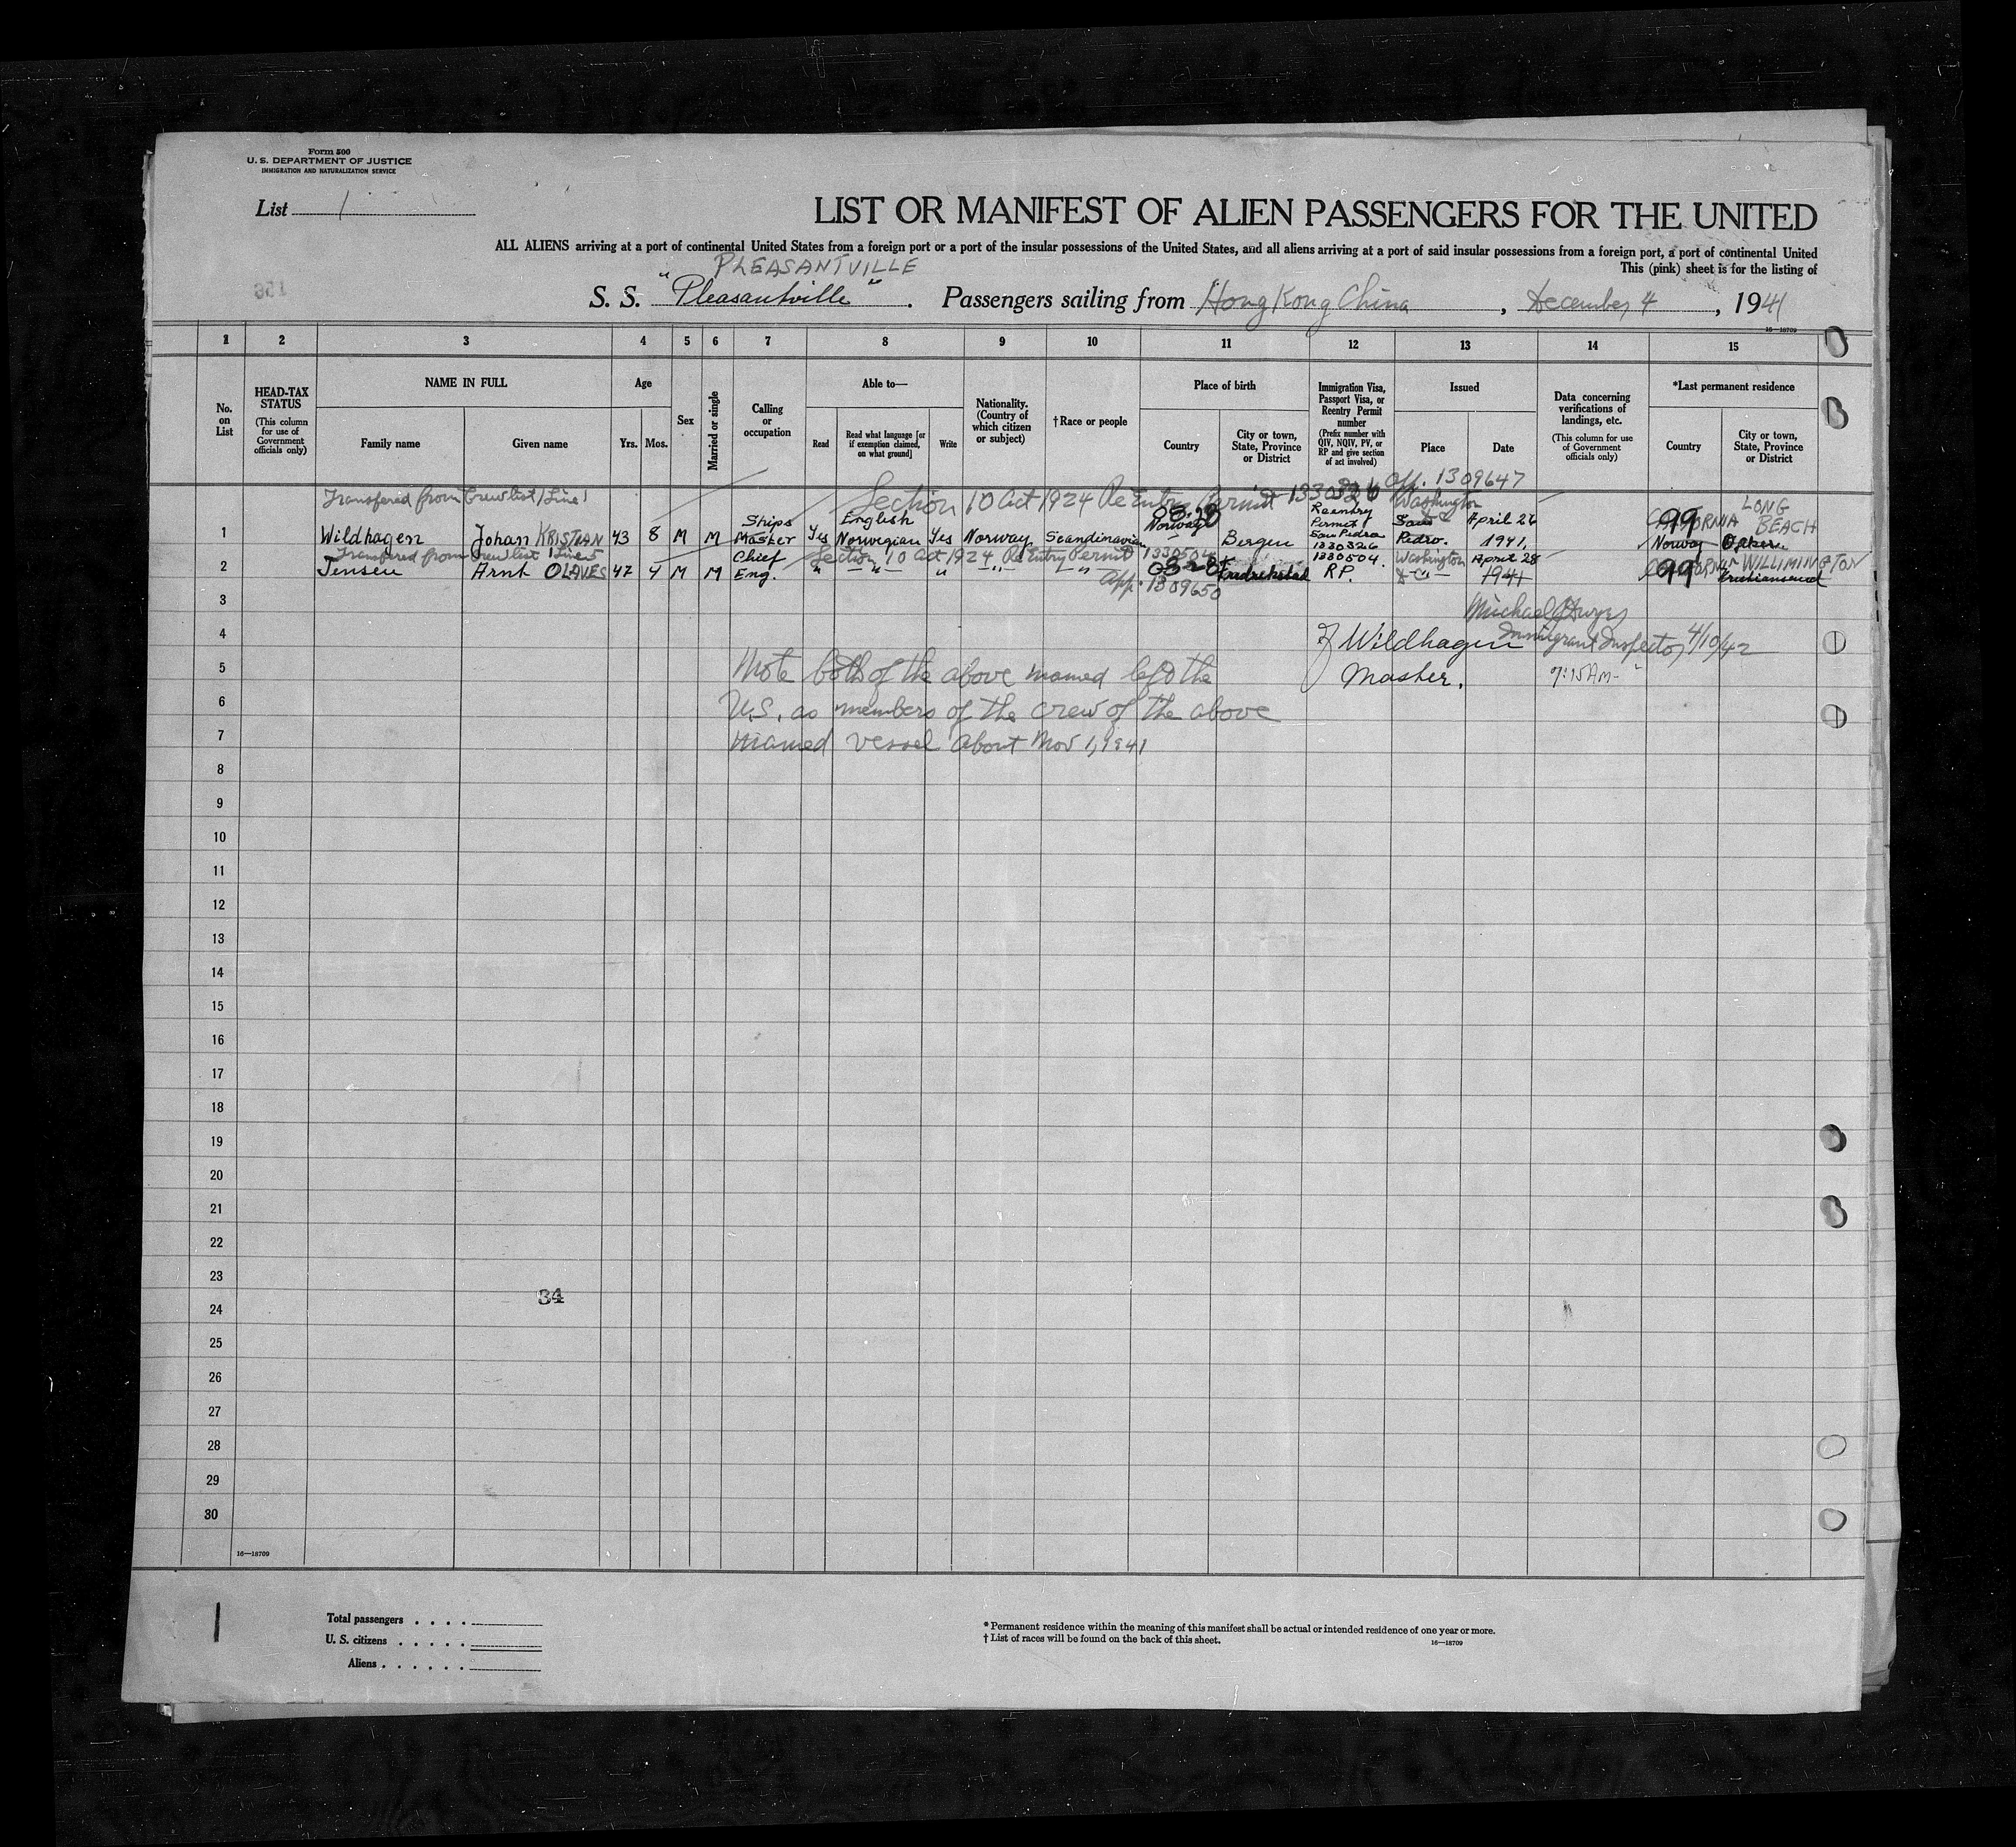 Form 500
U. S. DEPARTMENT OF JUSTICE
IMMIGRATION AND NATURALIZATION SERVICE
List 1
LIST OR MANIFEST OF ALIEN PASSENGERS FOR THE UNITED
ALL ALIENS arriving at a port of continental United States from a foreign port or a port of the insular possessions of the United States, and all aliens arriving at a port of said insular possessions from a foreign port, a port of continental United
This (pink) sheet is for the listing of
PLEASANTVILLE
S. S. "Pleasantville". Passengers sailing from Hong Kong China, December 4, 1941
16—18709
1 2 3 4 5 6 7 8 9 10 11 12 13 14 15
No. on List
HEAD-TAX STATUS
(This column for use of Government officials only)
NAME IN FULL
Family name
Given name
Age
Yrs.
Mos.
Sex
Married or single
Calling or occupation
Able to—
Read
Read what language [or if exemption claimed, on what ground]
Write
Nationality. (Country of which citizen or subject)
†Race or people
Place of birth
Country
City or town, State, Province or District
Immigration Visa, Passport Visa, or Reentry Permit number
(Prefix number with QIV, NQIV, PV, or RP and give section of act involved)
Issued
Place
Date
Data concerning verifications of landings, etc.
(This column for use of Government officials only)
*Last permanent residence
Country
City or town, State, Province or District
Transfered from Crew list 1 Line 1
Section 10 Act 1924 Re Entry Permit 1330326
1309647
1 Wildhagen Johan KRISTIAN 43 8 M M Ships Master Yes English Norwegian Yes Norway Scandinavian Norway Bergen Reentry Permit San Pedro 1330326 Washington San Pedro. April 26 1941. 99 CALIFORNIA LONG BEACH Norway
Transfered from Crew list 1 Line 5
Section 10 Act 1924 Re Entry Permit 1330504
2 Jensen Arnt OLAVES 47 4 M M Chief Eng. " " " " " 1330504. RP. Washington April 28 1941 99 WILLIMINGTON
App. 1309650
3
4
5
6
7
8
9
10
11
12
13
14
15
16
17
18
19
20
21
22
23
24
25
26
27
28
29
30
Immigrant Inspector 4/10/42
Wildhagen
Master.
9:15 AM
Note both of the above named left the
U.S. as members of the crew of the above
named vessel about Nov 1, 1941
34
16—18709
Total passengers
U. S. citizens
Aliens
* Permanent residence within the meaning of this manifest shall be actual or intended residence of one year or more.
† List of races will be found on the back of this sheet.
16—18709